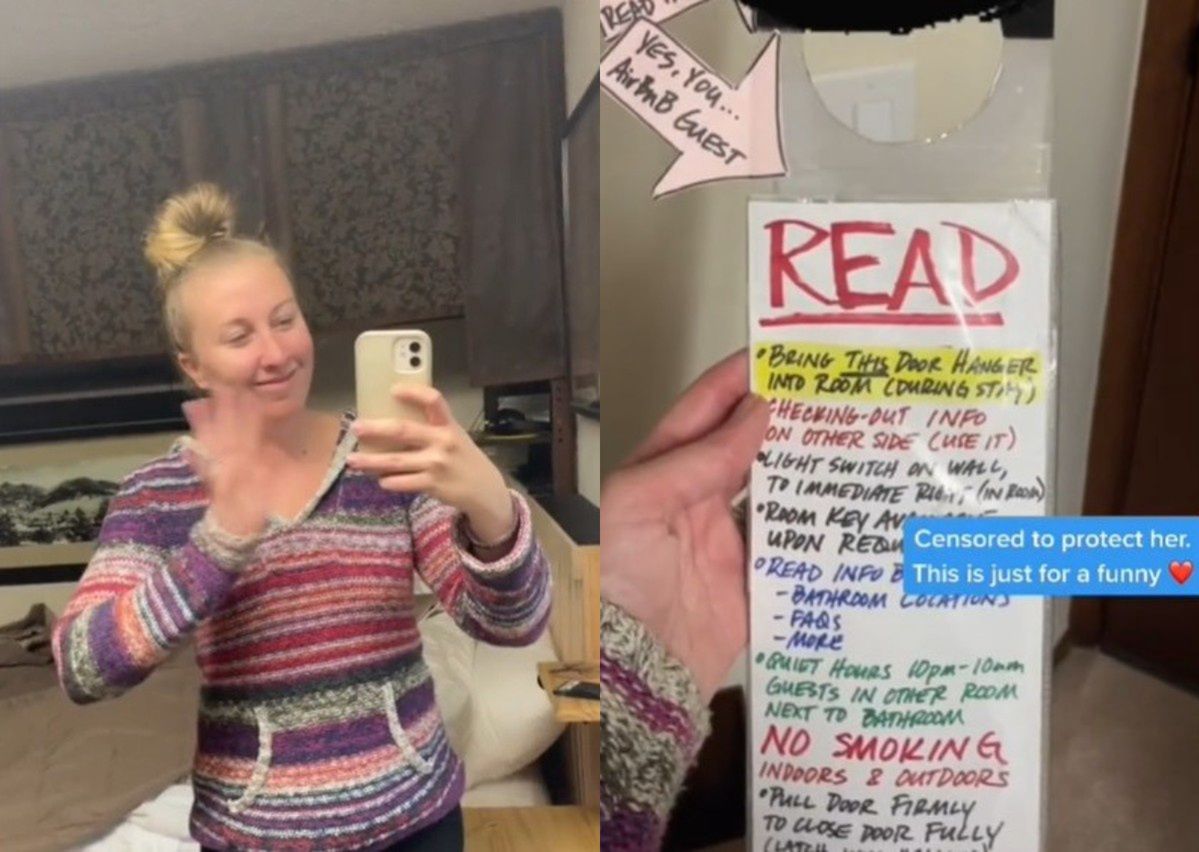 READ
YES, YOU...
AirBnB GUEST
READ
• BRING THIS DOOR HANGER
INTO ROOM (DURING STAY)
CHECKING-OUT INFO
ON OTHER SIDE (USE IT)
• LIGHT SWITCH ON WALL,
TO IMMEDIATE RIGHT (IN ROOM)
• ROOM KEY
UPON
Censored to protect her.
This is just for a funny ❤️
• READ INFO
- BATHROOM LOCATIONS
- FAQS
- MORE
• QUIET HOURS 10pm-10am
GUESTS IN OTHER ROOM
NEXT TO BATHROOM
NO SMOKING
INDOORS & OUTDOORS
• PULL DOOR FIRMLY
TO CLOSE DOOR FULLY